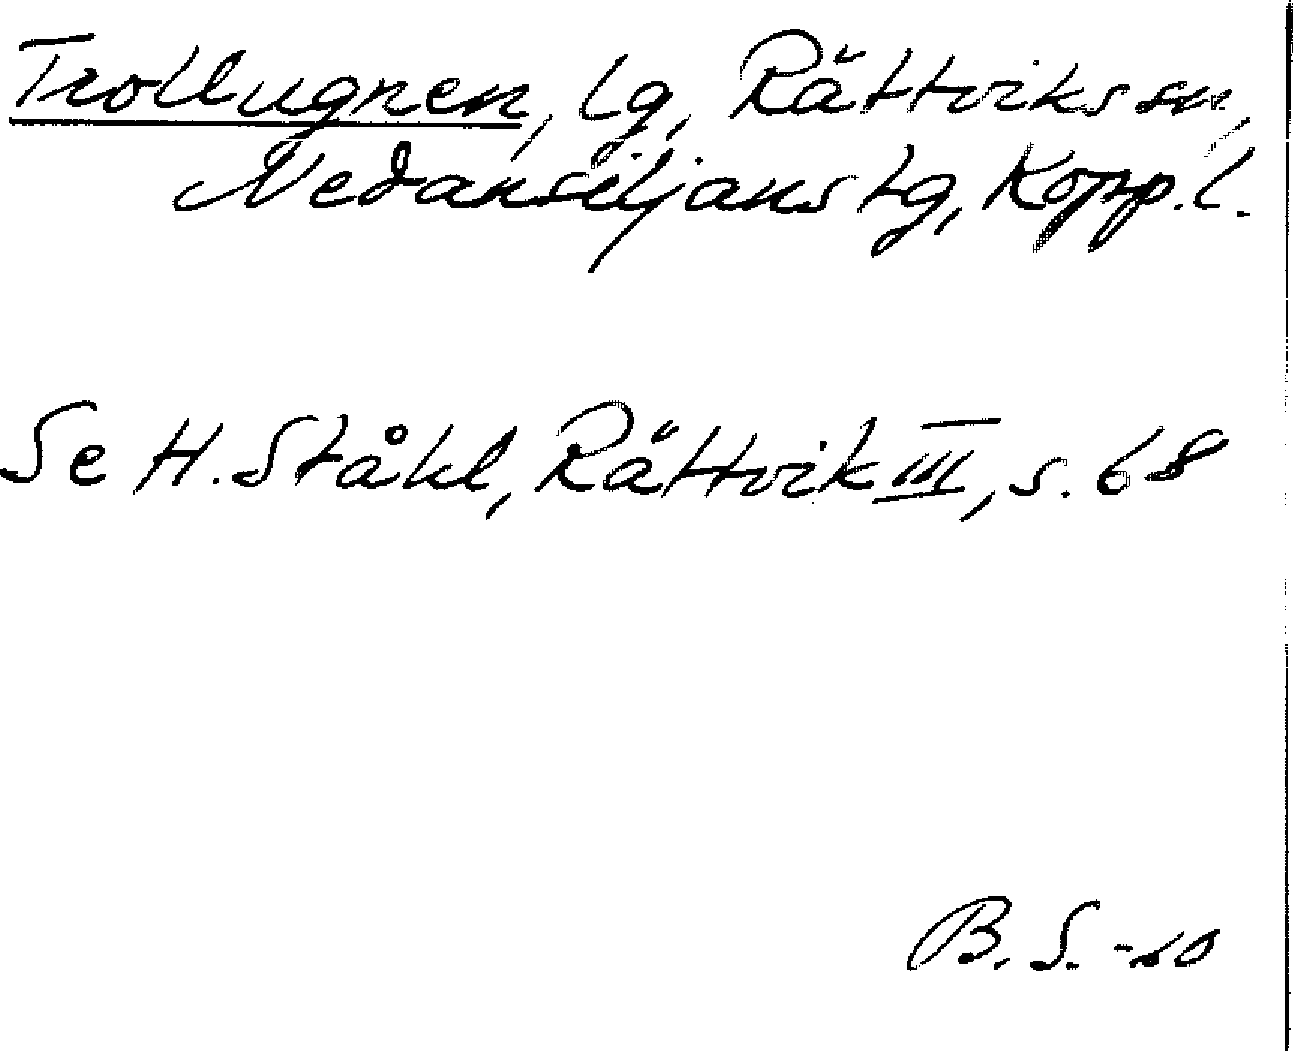 Trollugnen, lg, Rättviks sn,
Nedansiljans tg, Kopp.l.
Se H. Ståhl, Rättvik III, s. 68
B. S. -60